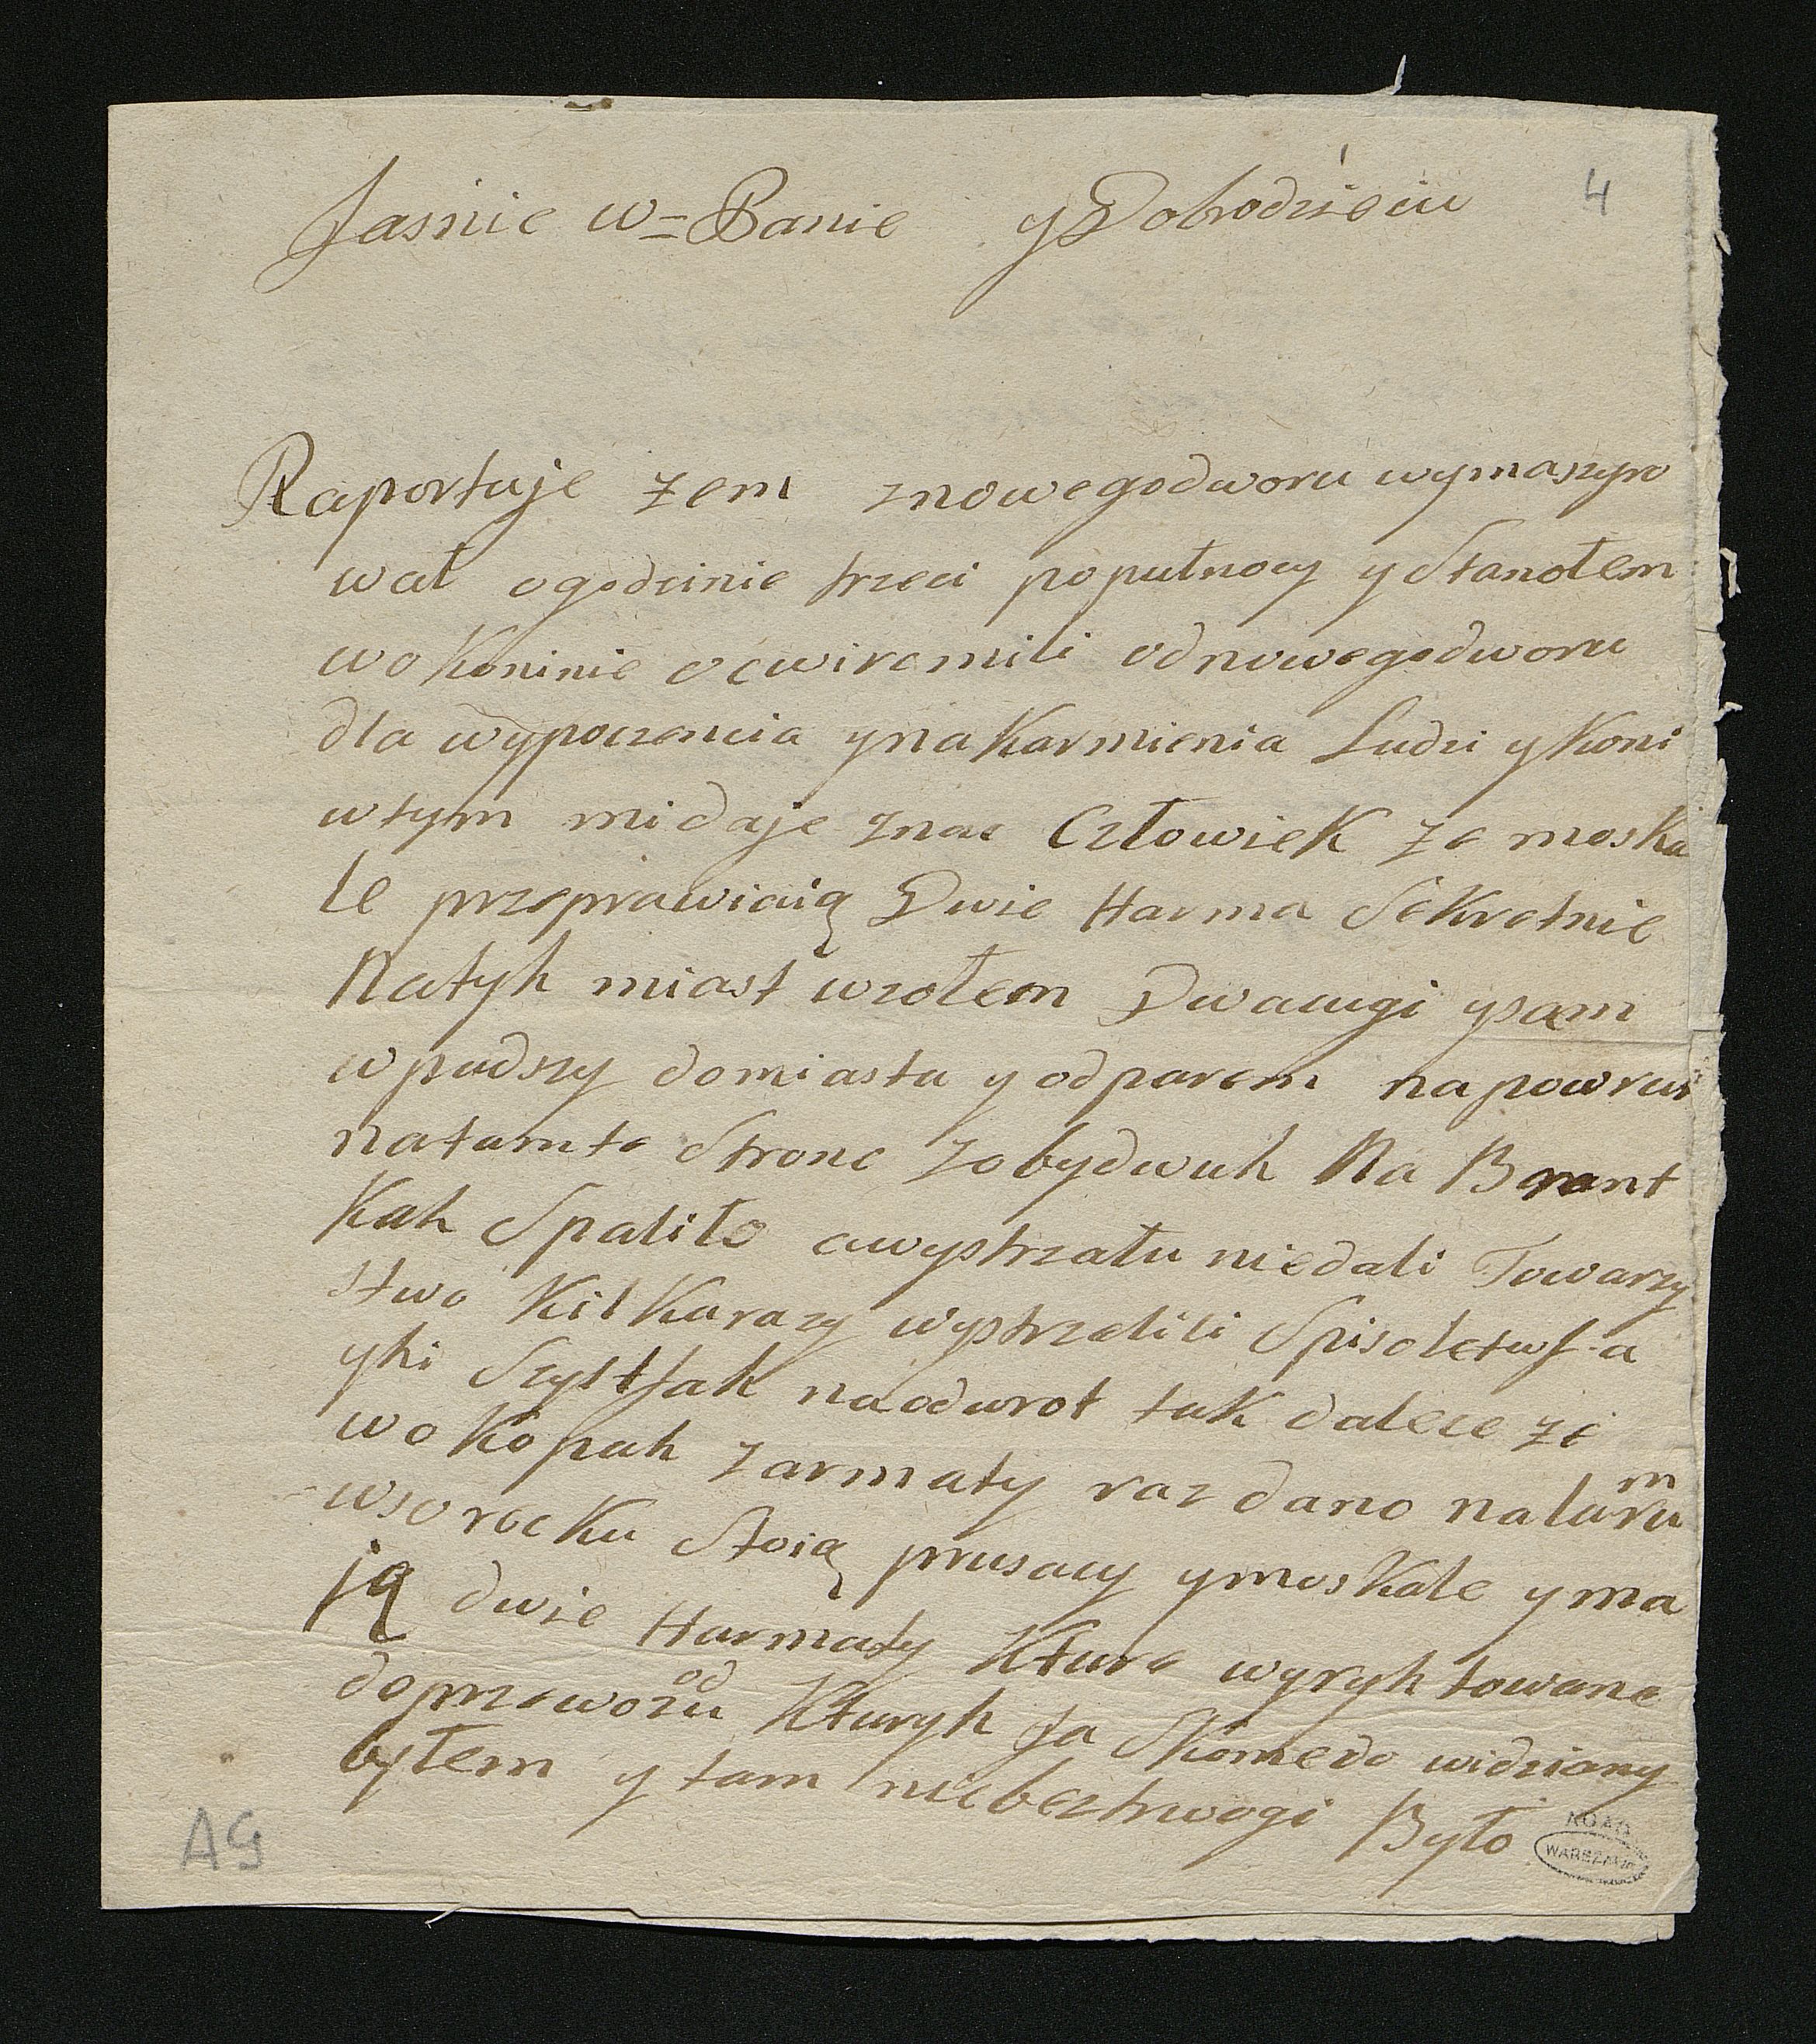 Jasnie W= Panie y Dobodzieiu
4
Raportuje zem znowegodworu wymaszyro
wał ogodzinie trzeci popułnocy y Stanołem
wokoninie ocwiremili odnowegodworu
dla wypoczencia ynakarmienia Ludzi ykoni
wtym midaje znac Człowiek ze moska
le przeprawiaią Dwie Harma Sekretnie
Natyh miast wzołem Dwa ysam
wpadszy domiasta y odparem napowrut
natamte Strone zobydwuh Na Brant
kah Spaliło awystrzału niedali Towarzy
stwo Kilkurazy wystrzelili Spisoletuf a
yhi naodwrot tak dalece ze
wokopah zarmaty raz dano nalarm
wsorocku Stoią prusacy ymoskale yma
ją dwie Harmaty Kture wyryhtowane
doprzewozu od Kturyh Ja Skomedo widziany
byłem y tam niebeztrwogi Było
AG
AGAD
WARSZAWA